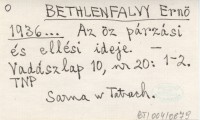 O BETHLENFALVY Ernő
1936.... Az őz párzási
és ellési ideje. –
Vadászlap 10, nr 20: 1-2.
TNP
Sarna w Tatrach.